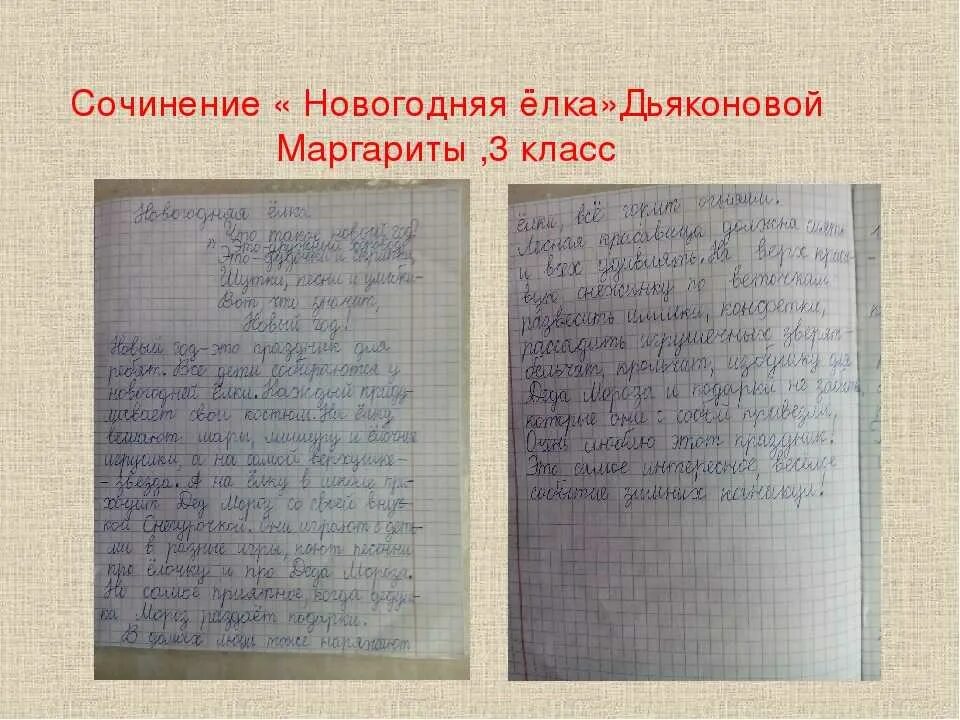 Сочинение « Новогодняя ёлка»Дьяконовой
Маргариты ,3 класс
Новогодняя ёлка
Что такое новый год?
Это-дружный хоровод
Это-дудочки и скрипки,
Шутки, песни и улыбки-
Вот что значит,
Новый год!
Новый год-это праздник для
ребят. Все дети собираются у
новогодней ёлки. Каждый приду-
мывает свои костюм. На ёлку
вешают шары, мишуру и ёлочные
игрушки, а на самой верхушке-
-звезда. А на ёлку в школе при-
ходит Дед Мороз со своей внуч-
кой Снегурочкой. Они играют с деть-
ми в разные игры, поют песенки
про ёлочку и про Деда Мороза.
Но самое приятное, когда дедуш-
ка Мороз раздаёт подарки.
В домах люди тоже наряжают
ёлки, всё горит огнями.
Лесная красавица должна сиять
и всех удивлять. На верх
снежинку по веточкам
развесить шишки, конфетки,
рассадить игрушечных зверят-
бельчат, крольчат, избушку для
Деда Мороза и подарки не забыть,
которые она с собой привезла.
Очень люблю этот праздник!
Это самое интересное, веселое
событие зимних каникул!